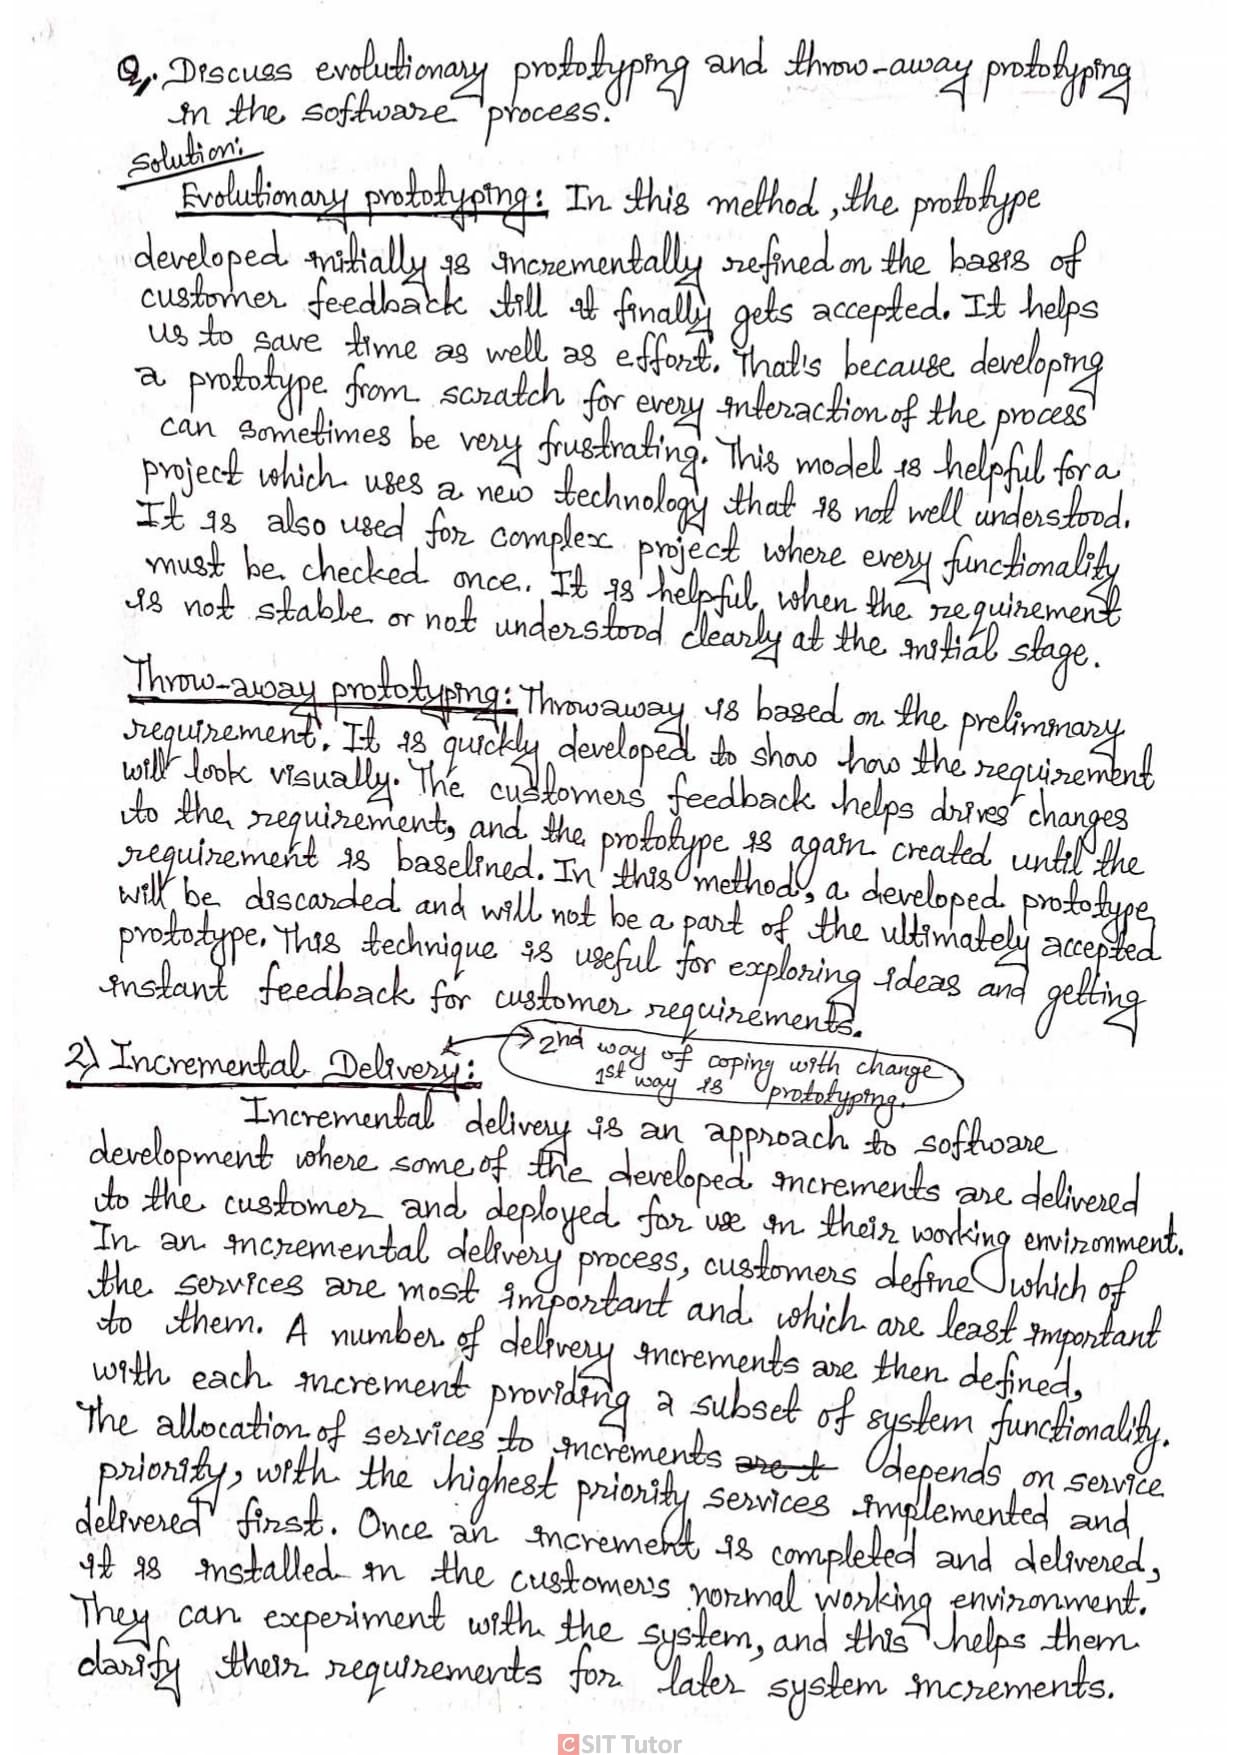 Q. Discuss evolutionary prototyping and throw-away prototyping
in the software process.
Solution:
Evolutionary prototyping: In this method, the prototype
developed initially is incrementally refined on the basis of
customer feedback till it finally gets accepted. It helps
us to save time as well as effort. That's because developing
a prototype from scratch for every interaction of the process
can sometimes be very frustrating. This model is helpful for a
project which uses a new technology that is not well understood.
It is also used for complex project where every functionality
must be checked once. It is helpful when the requirement
is not stable or not understood clearly at the initial stage.
Throw-away prototyping: Throwaway is based on the preliminary
requirement. It is quickly developed to show how the requirement
will look visually. The customers feedback helps drives changes
to the requirement, and the prototype is again created until the
requirement is baselined. In this method, a developed prototype
will be discarded and will not be a part of the ultimately accepted
prototype. This technique is useful for exploring ideas and getting
instant feedback for customer requirements.
2) Incremental Delivery:
2nd way of coping with change
1st way is prototyping.
Incremental delivery is an approach to software
development where some of the developed increments are delivered
to the customer and deployed for use in their working environment.
In an incremental delivery process, customers define which of
the services are most important and which are least important
to them. A number of delivery increments are then defined,
with each increment providing a subset of system functionality.
The allocation of services to increments are t depends on service
priority, with the highest priority services implemented and
delivered first. Once an increment is completed and delivered,
it is installed in the customer's normal working environment.
They can experiment with the system, and this helps them
clarify their requirements for later system increments.
CSIT Tutor